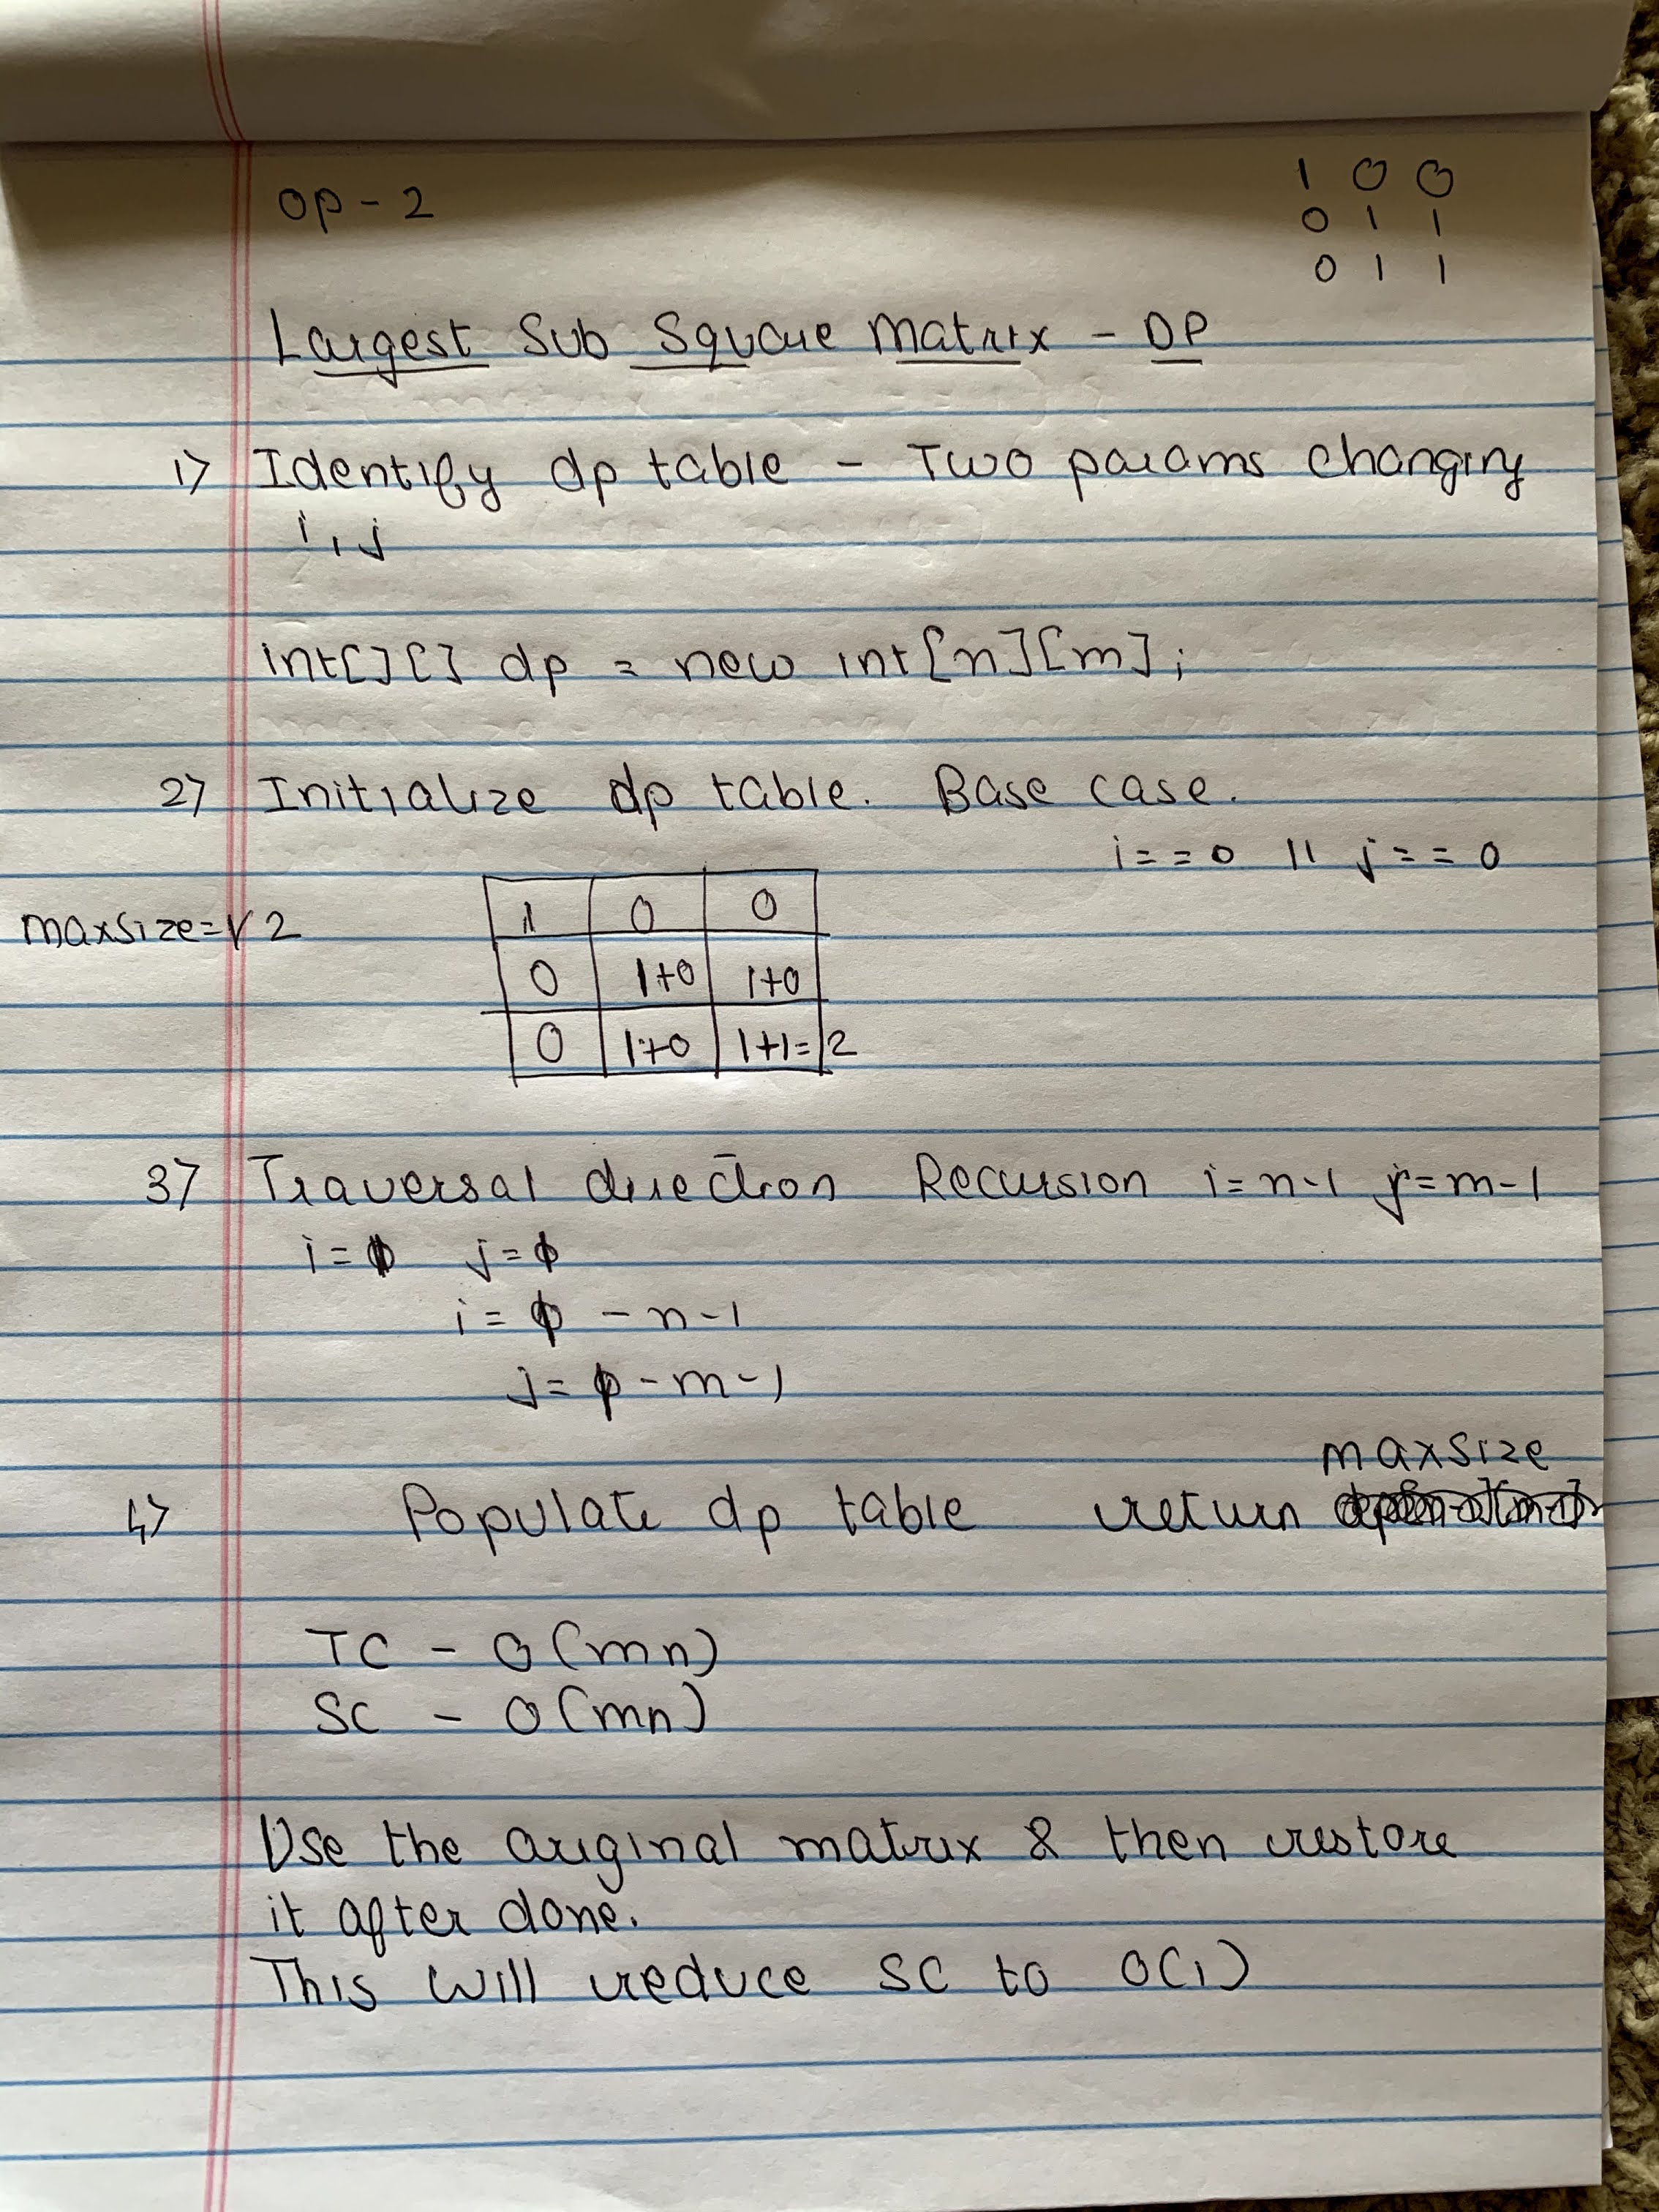 OP - 2
1 0 0
0 1 1
0 1 1
Largest Sub Square Matrix - DP
1) Identify dp table - Two params changing
i, j
int[][] dp = new int[n][m];
2) Initialize dp table. Base case.
i == 0 || j == 0
maxsize = 1 2
1 0 0
0 1+0 1+0
0 1+0 1+1=2
3) Traversal direction Recursion i=n-1 j=m-1
i = j =
i = - n-1
j = - m-1
maxsize
4) Populate dp table return
TC - O(mn)
SC - O(mn)
Use the original matrix & then restore
it after done.
This will reduce SC to O(1)